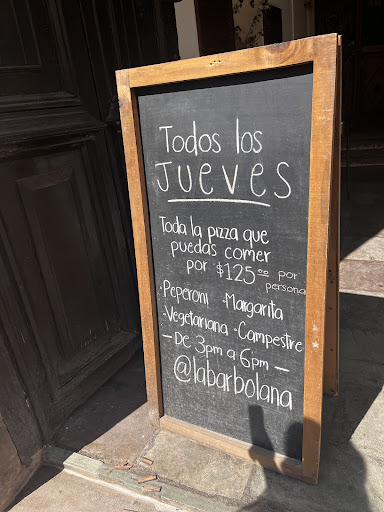 Todos los
JUEVES
Toda la pizza que
puedas comer
por $125.00 por
persona
·Peperoni ·Margarita
·Vegetariana ·Campestre
— De 3pm a 6pm —
@labarbolana